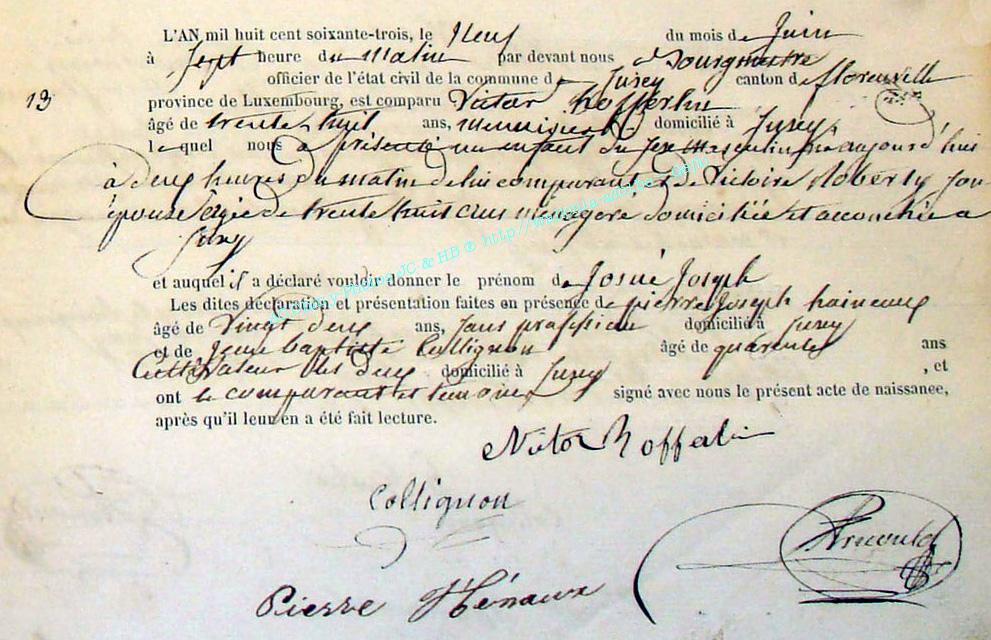 L'AN mil huit cent soixante-trois, le Neuf du mois de Juin
à Sept heure du matin par devant nous Bourgmestre
officier de l'état civil de la commune de Juzey canton de florenville
13 province de Luxembourg, est comparu Victor Hofferlin
âgé de trente huit ans, menuisier domicilié à Juzey
lequel nous a présenté un enfant du sexe masculin né aujourd'hui
à deux heures du matin de lui comparant et de Victoire Roberty son
épouse âgée de trente huit ans ménagère domiciliée et accouchée a
Juzey
et auquel il a déclaré vouloir donner le prénom de Josué Joseph
Les dites déclaration et présentation faites en présence de pierre Joseph haineaux
âgé de Vingt deux ans, sans profession domicilié à Juzey
et de Jean Baptiste Collignon âgé de quarante ans
Cultivateur les deux domicilié à Juzey, et
ont le comparant et temoins signé avec nous le présent acte de naissance,
après qu'il leur en a été fait lecture.
Victor Hofferlin
Collignon
Arnould
Pierre Hénaux
JC & HB © http://